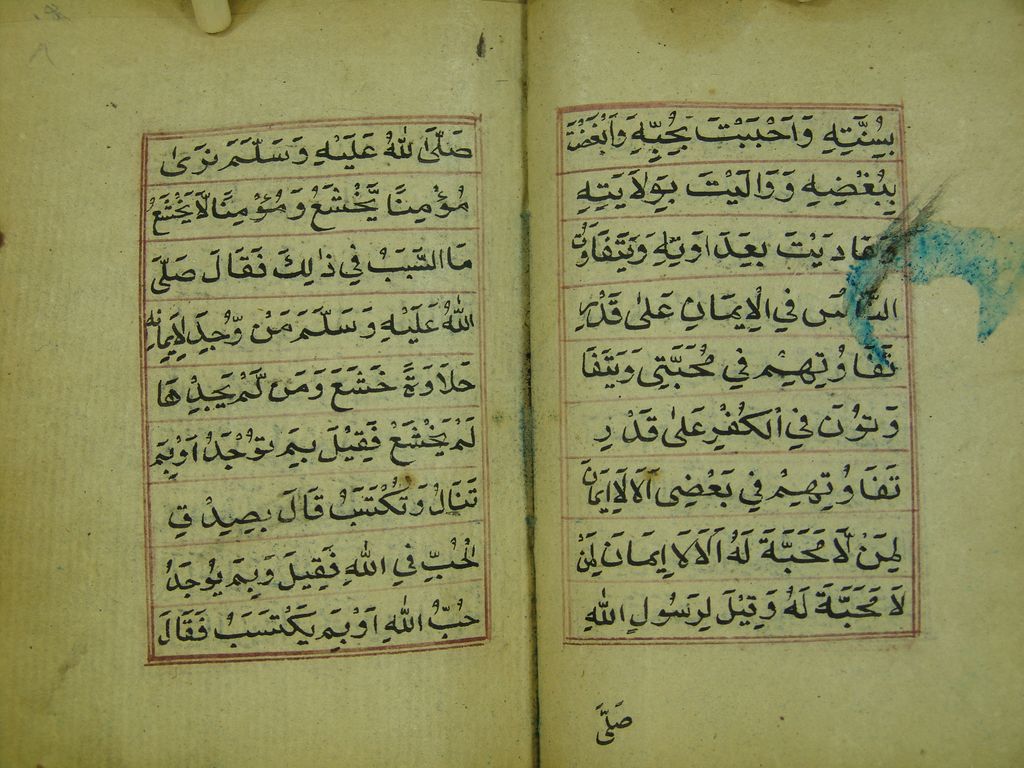 بِسُنَّتِهٖ وَاَحْبَبْتَ بِحُبِّهٖ وَاَبْغَضْتَ
بِبُغْضِهٖ وَوَالَيْتَ بِوِلَايَتِهٖ
وَعَادَيْتَ بِعَدَاوَتِهٖ وَيَتَفَاوَتُ
النَّاسُ فِي الْاِيْمَانِ عَلٰى قَدْرِ
تَفَاوُتِهِمْ فِي مُحَبَّتِي وَيَتَفَا
وَتُوْنَ فِي الْكُفْرِ عَلٰى قَدْرِ
تَفَاوُتِهِمْ فِي بُغْضِي اَلَا لَا اِيْمَانَ
لِمَنْ لَّا مَحَبَّةَ لَهٗ اَلَا لَا اِيْمَانَ لِمَنْ
لَا مَحَبَّةَ لَهٗ وَقِيْلَ لِرَسُولِ اللّٰهِ
صَلَّى
صَلَّى اللّٰهُ عَلَيْهِ وَسَلَّمَ نَرٰى
مُؤْمِنًا يَّخْشَعُ وَمُؤْمِنًا لَّا يَخْشَعُ
مَا السَّبَبُ فِي ذٰلِكَ فَقَالَ صَلَّى
اللّٰهُ عَلَيْهِ وَسَلَّمَ مَنْ وَّجَدَ لِاِيْمَانِهٖ
حَلَاوَةً خَشَعَ وَمَنْ لَّمْ يَجِدْهَا
لَمْ يَخْشَعْ فَقِيْلَ بِمَ تُوْجَدُ اَوْ بِمَ
تَنَالُ وَتُكْتَسَبُ قَالَ بِصِدْقِ
الْحُبِّ فِي اللّٰهِ فَقِيْلَ وَبِمَ يُوْجَدُ
حُبُّ اللّٰهِ اَوْ بِمَ يَكْتَسَبُ فَقَالَ